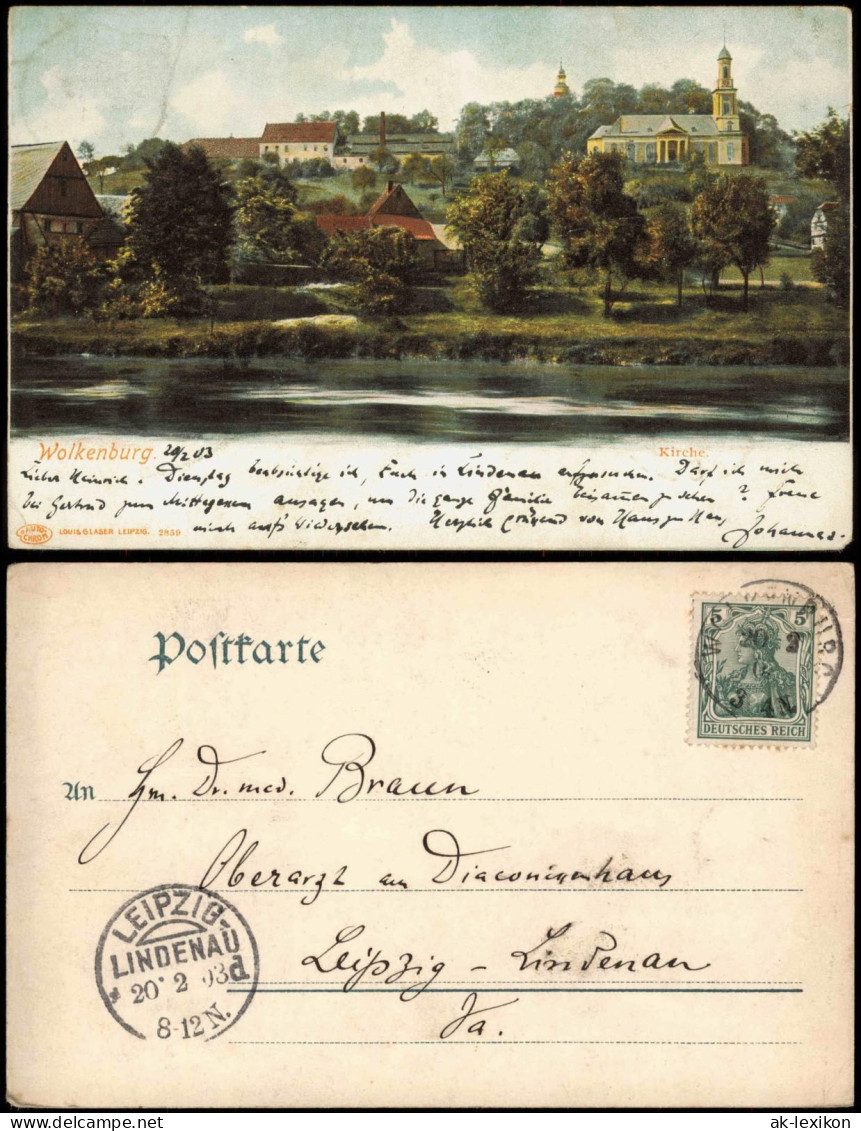 Wolkenburg. 20/2 03
Kirche.
Lieber Heinrich. Dienstag beabsichtige ich, Euch in Lindenau aufzusuchen. Darf ich mich
bei Gertrud zum Mittagessen ansagen, um die ganze Familie beisammen zu sehen? Freue
mich aufs Wiedersehen. Herzlich grüßend von Haus zu Haus,
Johannes.
AUTO CHROM
LOUIS GLASER LEIPZIG. 2859
Postkarte
5 5
DEUTSCHES REICH
WOLKENBURG
20 2
3 N.
An Hrn. Dr. med. Braun
Oberarzt am Diaconissenhaus
Leipzig - Lindenau
Sa.
LEIPZIG-
LINDENAU
* 20 2 03 d
8-12 N.
ak-lexikon